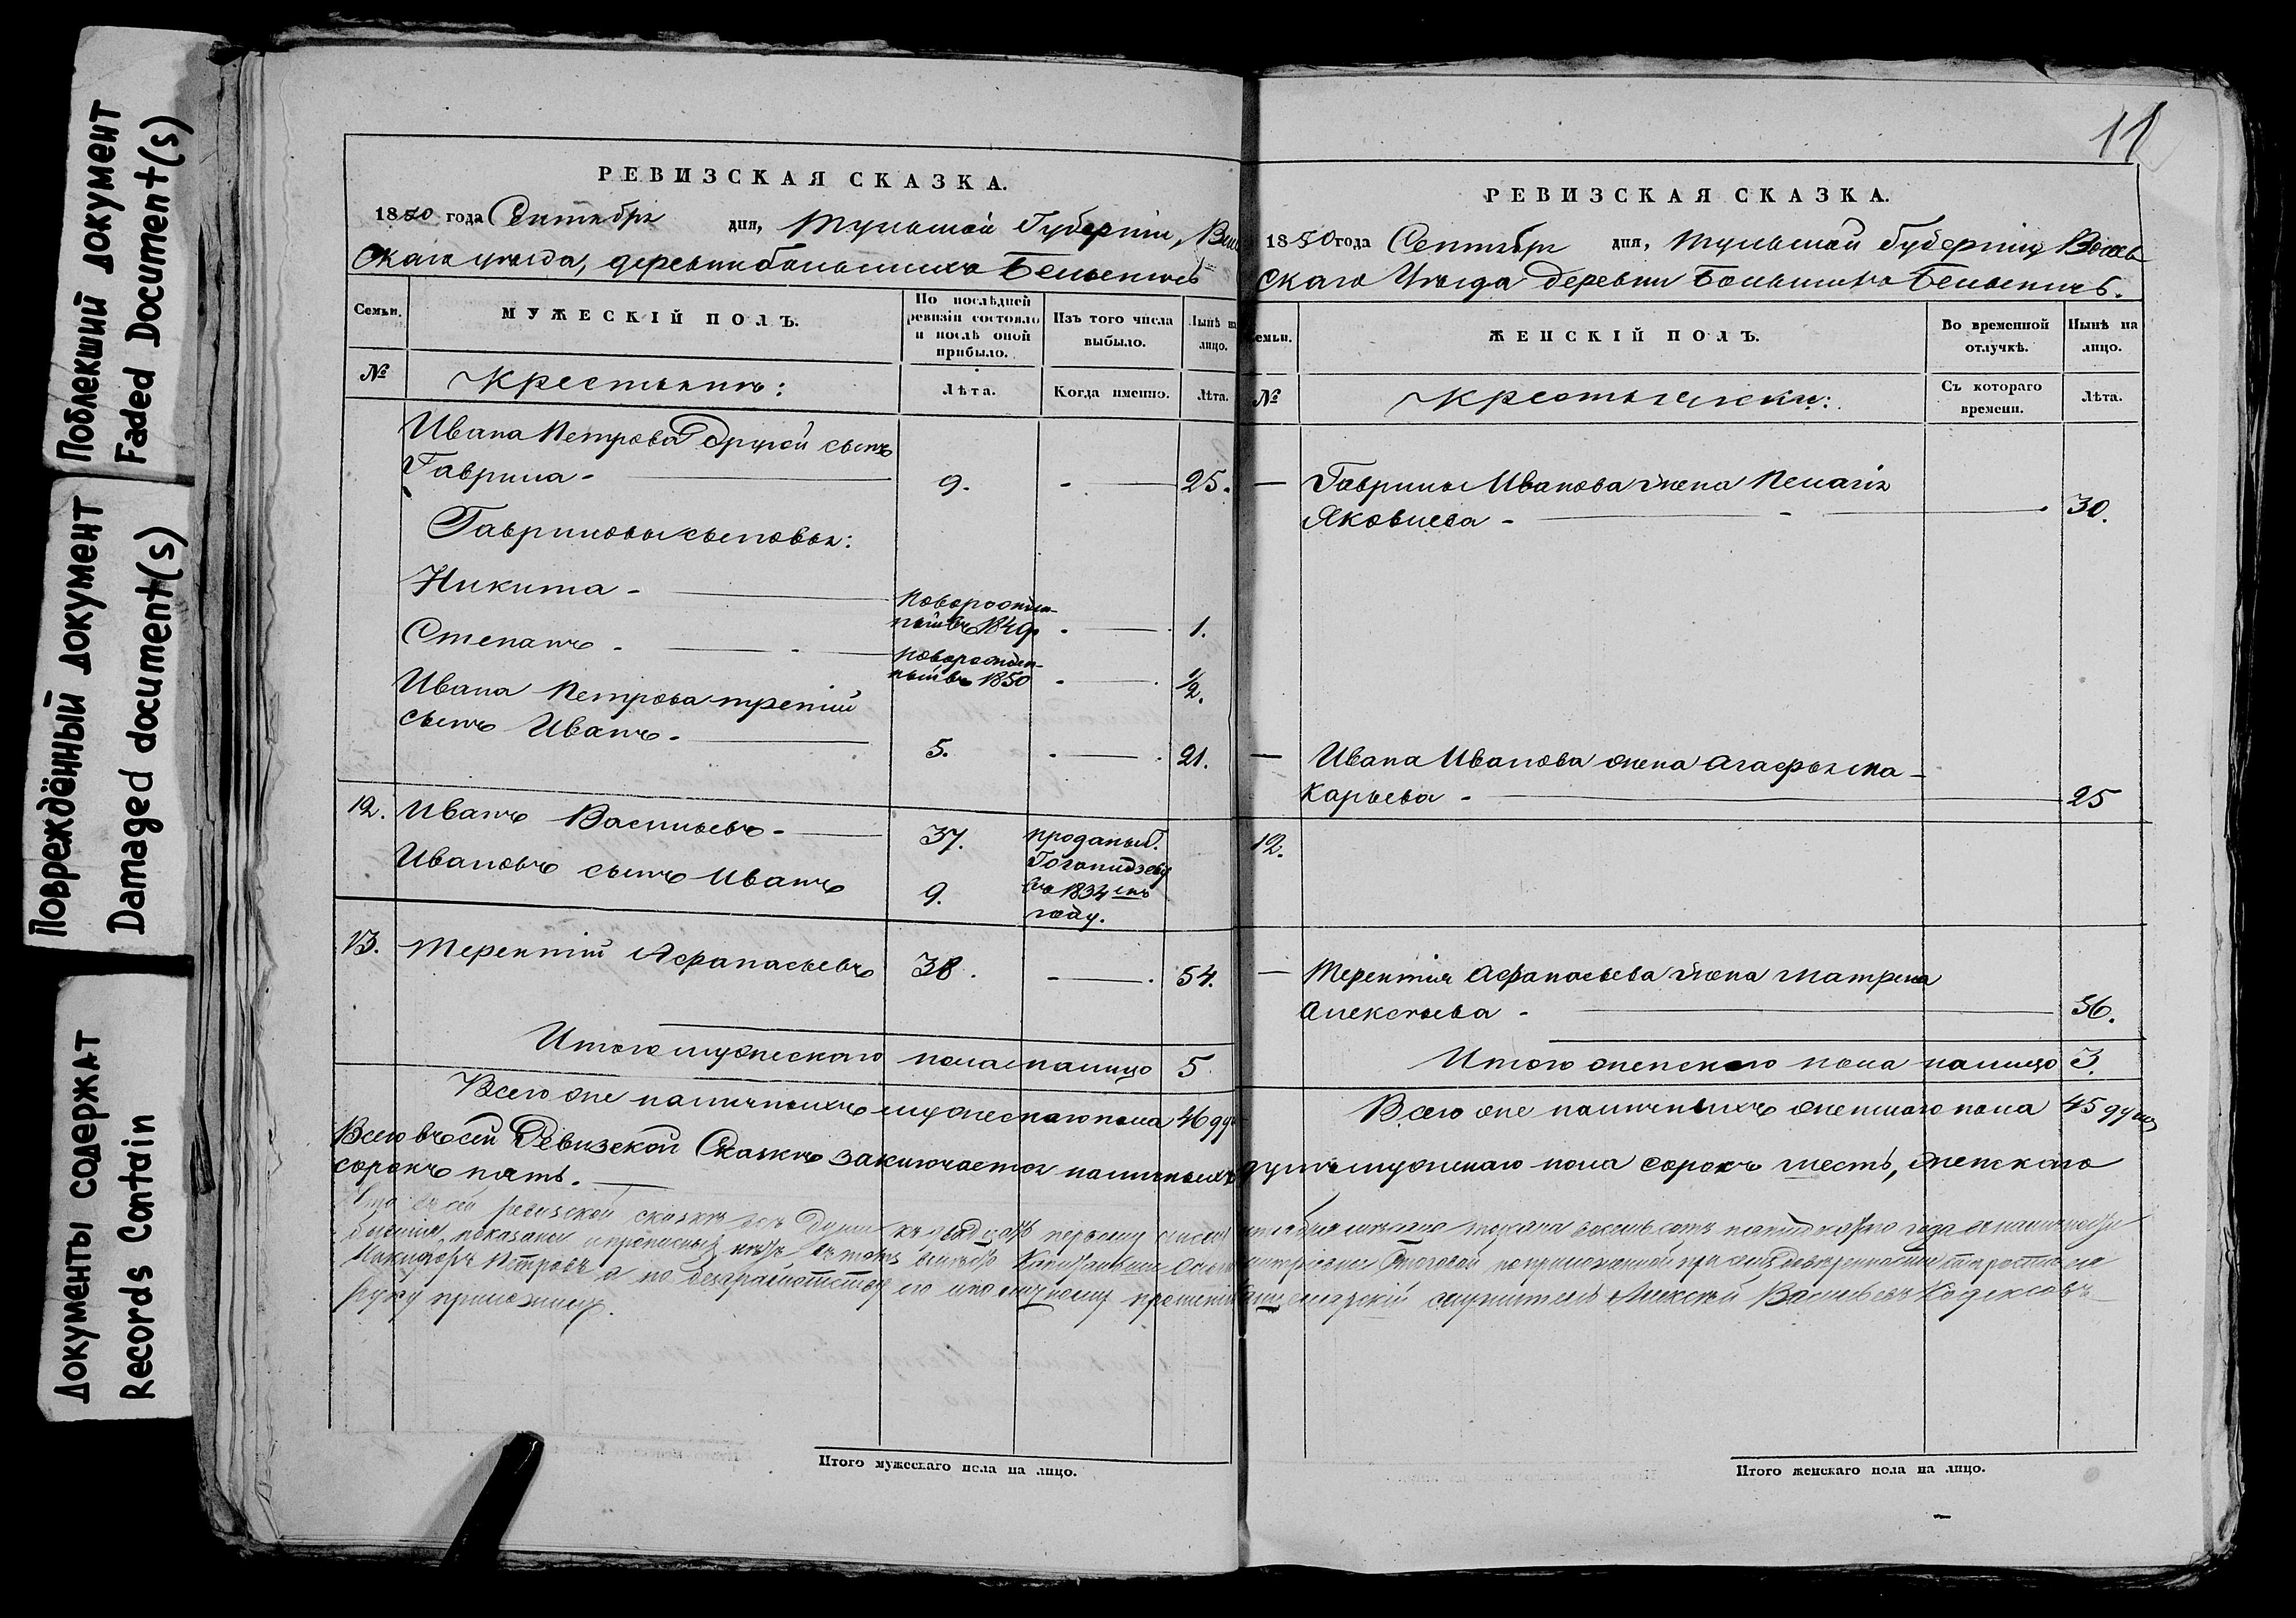 Поблекший документ
Faded Document(s)
Повреждённый документ
Damaged document(s)
Документы содержат
Records Contain
РЕВИЗСКАЯ СКАЗКА.
1850 года Сентября дня, Тульской Губернiи,
скаго уѣзда, деревни большихъ
Семьи.
МУЖЕСКIЙ ПОЛЪ.
По послѣдней
ревизiи состояло
и послѣ оной
прибыло.
Изъ того числа
выбыло.
Нынѣ на
лицо.
№
Крестьянъ:
Лѣта.
Когда именно.
Лѣта.
Ивана Петрова другой сынъ
Гаврила - 9. - 25.
Гавриловы сыновья:
Никита - новорожден-
ный въ 1849 - 1.
Степанъ - новорожден-
ный въ 1850 - 1/2.
Ивана Петрова третiй
сынъ Иванъ - 5. - 21.
12. Иванъ Васильевъ - 37. проданы Г.
Ивановъ сынъ Иванъ 9. въ 1834мъ
году.
13. Терентiй Афанасьевъ 38. - 54.
Итого мужескаго пола налицо 5
Всего же наличныхъ мужескаго пола 46
11
РЕВИЗСКАЯ СКАЗКА.
1850 года Сентября дня, Тульской губернiи
скаго Уѣзда деревни Большихъ
Семьи.
ЖЕНСКIЙ ПОЛЪ.
Во временной
отлучкѣ.
Нынѣ на
лицо.
№
Крестьянки:
Съ котораго
времени.
Лѣта.
— Гаврилы Иванова жена Пелагiя
Яковлева - 30.
— Ивана Иванова жена Агафья Ма-
карьева - 25
12.
— Терентiя Афанасьева жена Матрена
Алексѣева - 56.
Итого женскаго пола налицо 3.
Всего же наличныхъ женскаго пола 45 душъ
Всего въ сей Ревизской Сказкѣ заключается наличныхъ душъ мужескаго пола сорокъ шесть, женскаго
сорокъ пять.
Что въ сей ревизской сказкѣ всѣ души
показаны и прописныхъ нѣтъ въ томъ
Петровъ а по безграмотству его и по личному прошенiю служитель Алексѣй Васильевъ
руку приложилъ.
Итого мужескаго пола на лицо.
Итого женскаго пола на лицо.